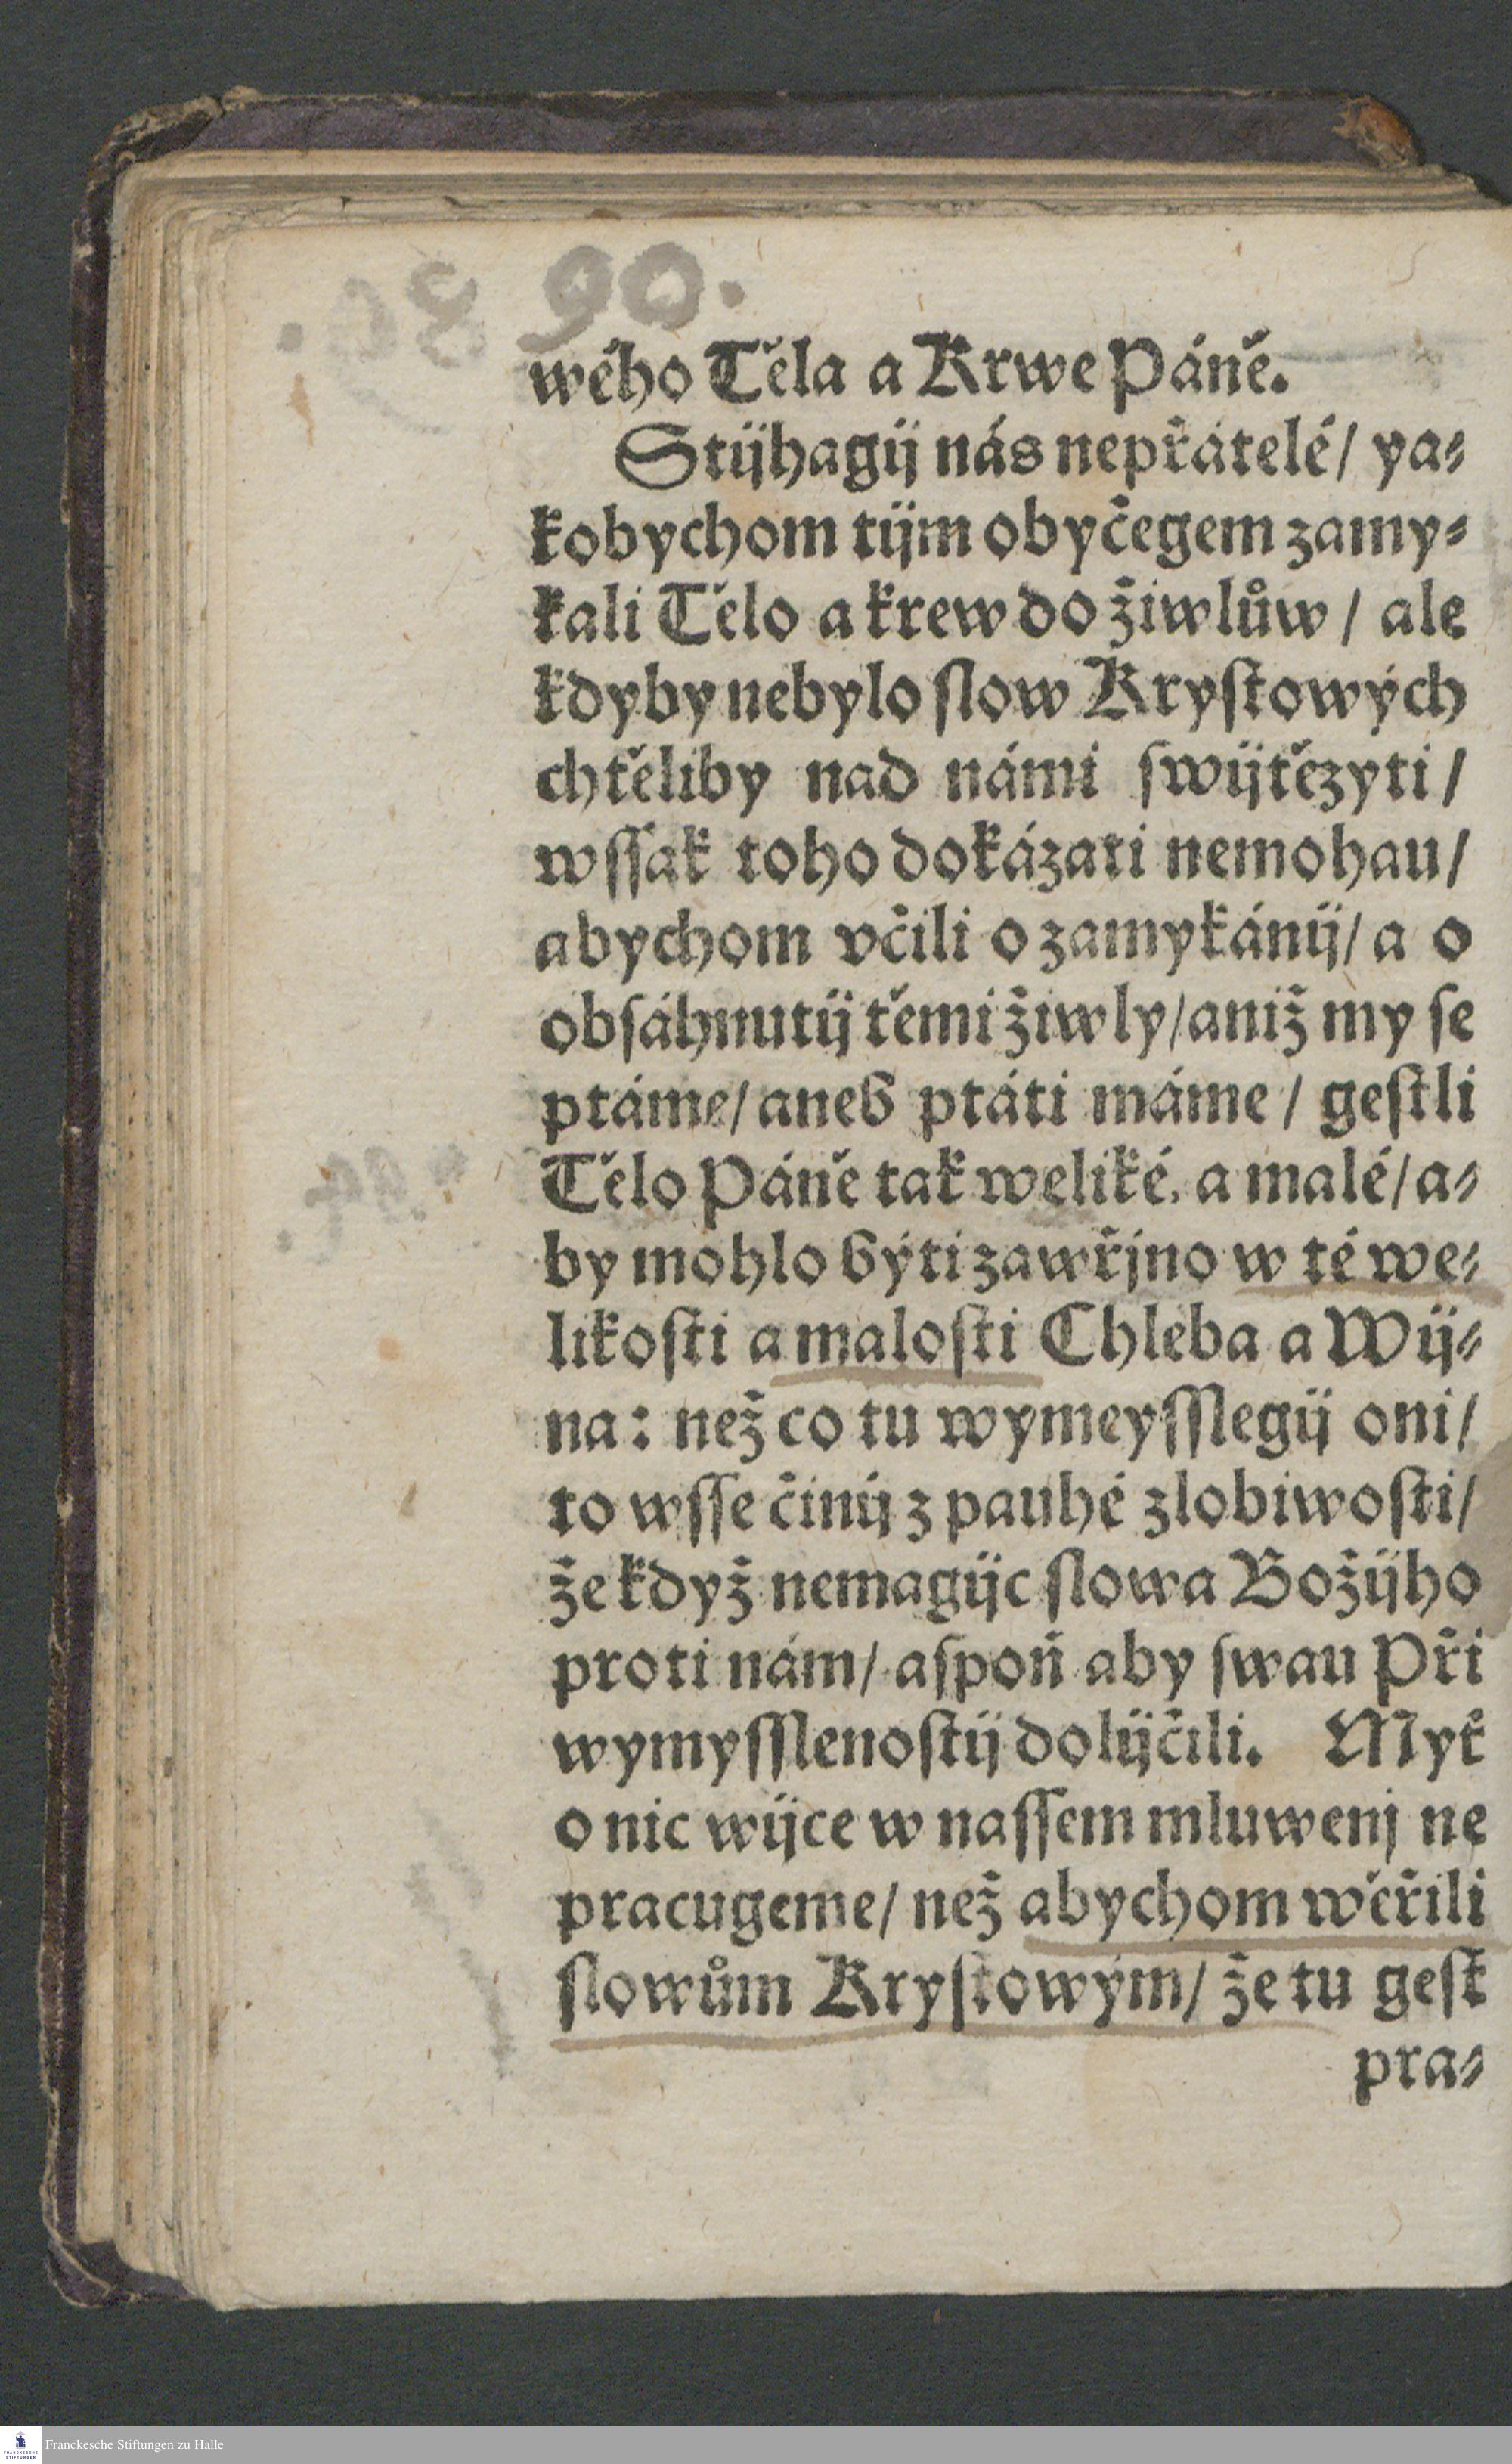 90.
wého Těla a Krwe Páně.
Stijhagij nás nepřátelé/ ya⸗
kobychom tijm obyčegem zamy⸗
kali Tělo a krew do žiwlůw/ ale
kdyby nebylo slow Krystowých
chtěliby nad námi swijtězyti/
wssak toho dokázati nemohau/
abychom včili o zamykánij/ a o
obsáhnutij těmi žiwly/ aniž my se
ptáme/ aneb ptáti máme/ gestli
Tělo Páně tak weliké, a malé/ a⸗
by mohlo býti zawřjno w té we⸗
likosti a malosti Chleba a Wij⸗
na: než co tu wymeysslegij oni/
to wsse činij z pauhé zlobiwosti/
že když nemagijc slowa Božijho
proti nám/ aspoň aby swau Při
wymysslenostij dolijčili. Myť
o nic wijce w nassem mluwenj ne
pracugeme/ než abychom wěřili
slowům Krystowým/ že tu gest
pra⸗
Franckesche Stiftungen zu Halle